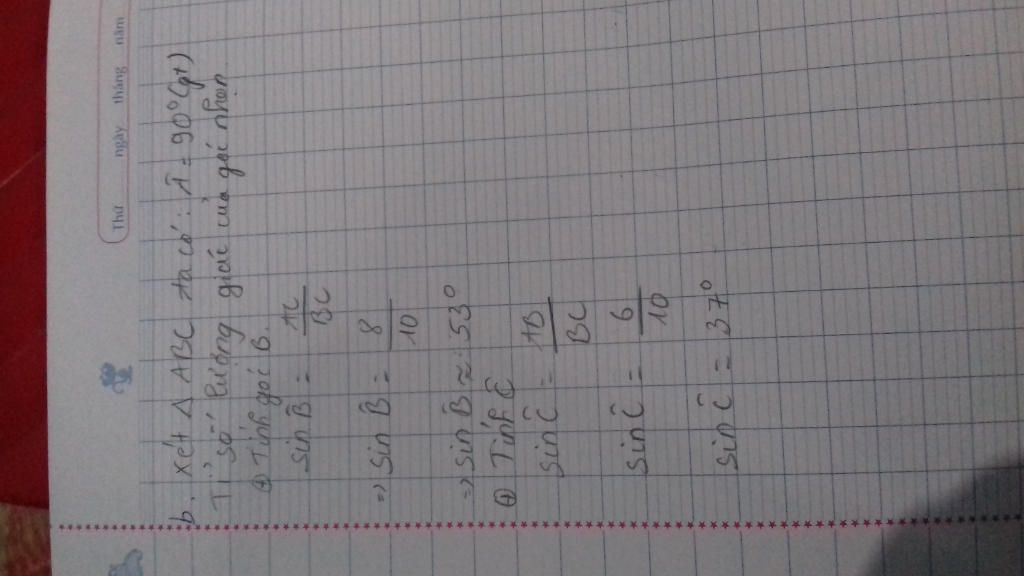 Thứ ngày tháng năm
b. Xét Δ ABC ta có: Â = 90° (gt)
Tỉ số lượng giác của góc nhọn.
⊕ Tính góc B.
sin B̂ = AC/BC
=> sin B̂ = 8/10
=> sin B̂ ≈ 53°
⊕ Tính Ĉ
sin Ĉ = AB/BC
sin Ĉ = 6/10
sin Ĉ = 37°